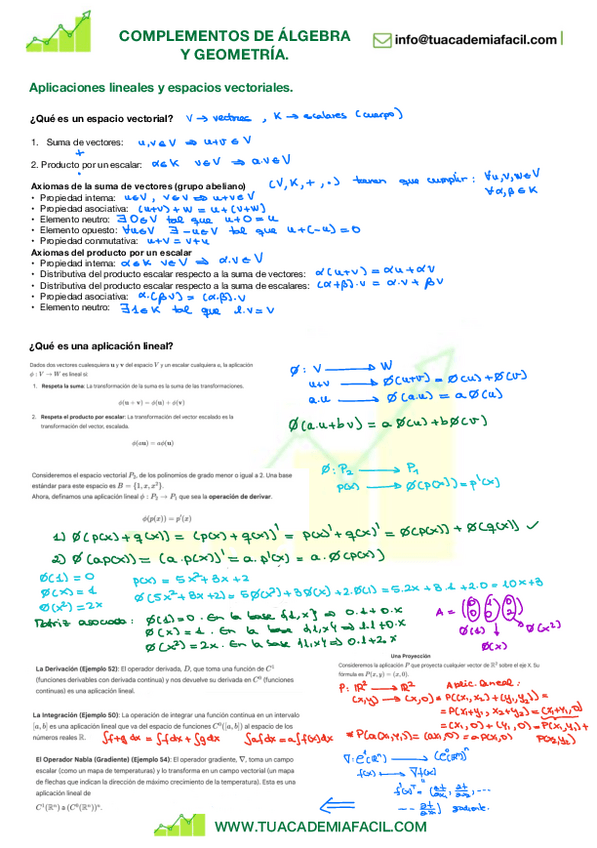 COMPLEMENTOS DE ÁLGEBRA
Y GEOMETRÍA.
info@tuacademiafacil.com
Aplicaciones lineales y espacios vectoriales.
¿Qué es un espacio vectorial? V → vectores , K → escalares (cuerpo)
1. Suma de vectores: u,v ∈ V ⇒ u+v ∈ V
+
2. Producto por un escalar: a ∈ K v ∈ V ⇒ a.v ∈ V
.
Axiomas de la suma de vectores (grupo abeliano) (V, K, +, .) tienen que cumplir: ∀u,v,w ∈ V
∀α,β ∈ K
• Propiedad interna: u ∈ V, v ∈ V ⇒ u+v ∈ V
• Propiedad asociativa: (u+v)+w = u+(v+w)
• Elemento neutro: ∃ 0 ∈ V tal que u+0 = u
• Elemento opuesto: ∀u ∈ V ∃ -u ∈ V tal que u+(-u) = 0
• Propiedad conmutativa: u+v = v+u
Axiomas del producto por un escalar
• Propiedad interna: α ∈ K v ∈ V ⇒ α.v ∈ V
• Distributiva del producto escalar respecto a la suma de vectores: α(u+v) = αu + αv
• Distributiva del producto escalar respecto a la suma de escalares: (α+β).v = α.v + βv
• Propiedad asociativa: α.(βv) = (α.β).v
• Elemento neutro: ∃ 1 ∈ K tal que 1.v = v
¿Qué es una aplicación lineal?
Dados dos vectores cualesquiera u y v del espacio V y un escalar cualquiera a, la aplicación
ϕ : V → W es lineal si:
1. Respeta la suma: La transformación de la suma es la suma de las transformaciones.
ϕ(u + v) = ϕ(u) + ϕ(v)
2. Respeta el producto por escalar: La transformación del vector escalado es la
transformación del vector, escalada.
ϕ(au) = aϕ(u)
ϕ: V → W
u+v → ϕ(u+v) = ϕ(u)+ϕ(v)
a.u → ϕ(a.u) = a ϕ(u)
ϕ(a.u+bv) = a ϕ(u)+bϕ(v)
Consideremos el espacio vectorial P₂, de los polinomios de grado menor o igual a 2. Una base
estándar para este espacio es B = {1, x, x²}.
Ahora, definamos una aplicación lineal ϕ : P₂ → P₁ que sea la operación de derivar.
ϕ(p(x)) = p′(x)
ϕ: P₂ → P₁
p(x) → ϕ(p(x)) = p'(x)
1) ϕ(p(x)+q(x)) = (p(x)+q(x))' = p(x)'+q(x)' = ϕ(p(x)) + ϕ(q(x)) ✓
2) ϕ(ap(x)) = (a.p(x))' = a.p'(x) = a.ϕ(p(x))
ϕ(1) = 0
ϕ(x) = 1
ϕ(x²) = 2x
p(x) = 5x²+8x+2
ϕ(5x²+8x+2) = 5ϕ(x²)+8ϕ(x)+2.ϕ(1) = 5.2x+8.1+2.0 = 10x+8
Matriz asociada: ϕ(1) = 0. En la base {1,x} ⇒ 0.1+0.x
ϕ(x) = 1. En la base {1,x} ⇒ 1.1+0.x
ϕ(x²) = 2x. En la base {1,x} ⇒ 0.1+2.x
A = (0 1 0
0 0 2)
ϕ(1) ϕ(x) ϕ(x²)
La Derivación (Ejemplo 52): El operador derivada, D, que toma una función de C¹
(funciones derivables con derivada continua) y nos devuelve su derivada en C⁰ (funciones
continuas) es una aplicación lineal.
La Integración (Ejemplo 50): La operación de integrar una función continua en un intervalo
[a, b] es una aplicación lineal que va del espacio de funciones C⁰([a, b]) al espacio de los
números reales ℝ. ∫f+g dx = ∫f dx + ∫g dx ∫af dx = a∫f(x)dx
El Operador Nabla (Gradiente) (Ejemplo 54): El operador gradiente, ∇, toma un campo
escalar (como un mapa de temperaturas) y lo transforma en un campo vectorial (un mapa
de flechas que indican la dirección de máximo crecimiento de la temperatura). Esta es una
aplicación lineal de
C¹(ℝⁿ) a (C⁰(ℝⁿ))ⁿ.
Una Proyección
Consideremos la aplicación P que proyecta cualquier vector de ℝ² sobre el eje X. Su
fórmula es P(x, y) = (x, 0).
P: ℝ² → ℝ² Aplic. lineal:
(x,y) → (x,0)
WWW.TUACADEMIAFACIL.COM